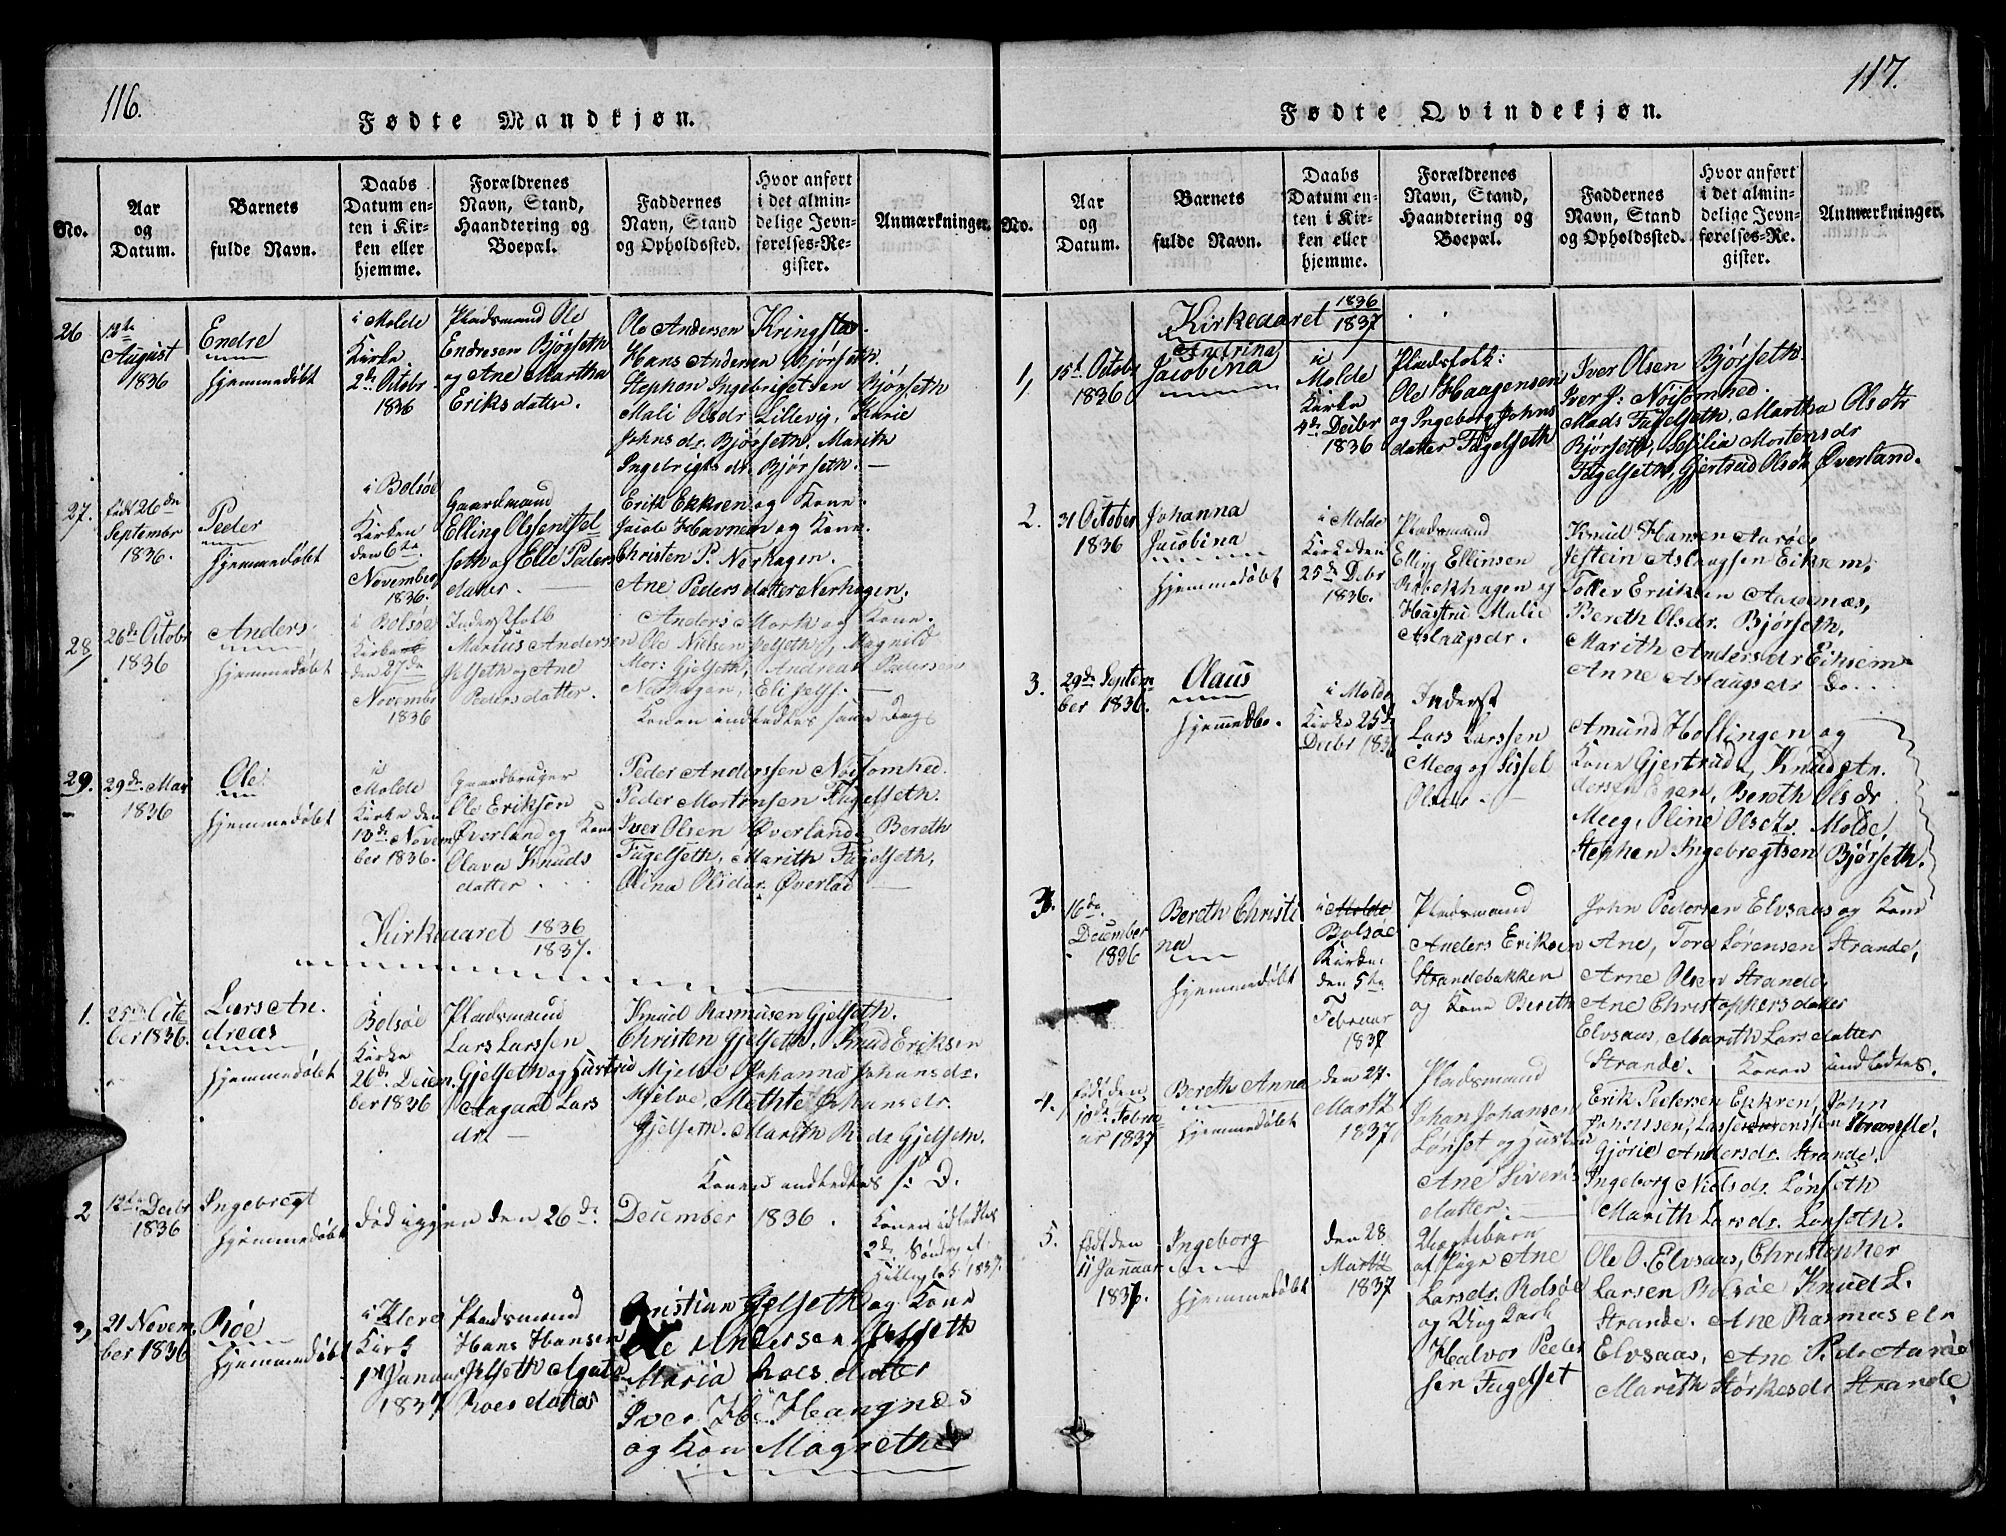 116.
Fødte Mandkjøn.
No.
Aar
og
Datum.
Barnets
fulde Navn.
Daabs
Datum en-
ten i Kir-
ken eller
hjemme.
Forældrenes
Navn, Stand,
Haandtering og
Boepæl.
Faddernes
Navn, Stand
og Opholdssted.
Hvor anført
i det almin-
delige Jevn-
førelses-Re-
gister.
Anmærkninger.
26
August
1836
Endre
hjemmedøbt
i Molde
Kirke
2de Octobr
1836
Pladsmand Ole
Endresen Bjørseth
og Ane Martha
Eriksdatter.
Ole Andersen Kringstad.
Hans Andersen Bjørseth.
Stephen Ingebrigtsen Bjørseth
Mali Olsdr Lillevig, Karie
Johnsdr. Bjørseth. Marith
Ingebrigtsdr. Bjørseth.
27.
født 26de
Septembr
1836.
Peder
hjemmedøbt
i Bolsøe
Kirken
den 6te
November
1836.
Gaardmand
Elling Olssen
seth og Elle Peders
datter.
Erik Ekkren og Kone.
Jacob Havnen og Kone.
Christen P. Nerhagen.
Ane Pedersdatter Nerhagen.
28
26de Octobr
1836
Anders
hjemmedøbt
i Bolsøe
Kirke
den 27de
November
1836
Inderstfolk
Marius Andersen
Jelseth og Ane
Pedersdatter.
Anders Mork og Kone.
Ole Nielsen Jelseth, Magnild
Mor: Gjelseth, Andreas Pedersen
Nerhagen, Eli Jelss.
Konen indledtes samme Dag
29.
29de Mai
1836
Ole
hjemmedøbt
i
Molde
Kirke den
13de Novem
ber 1836.
Gaardbruger
Ole Eriksen
Øverland og Kone
Olava Knuds
datter.
Peder Anderssen Nøisomhed.
Peder Mortensen Fugelseth.
Iver Olsen Øverland. Bereth
Fugelseth, Marith Fugelseth,
Olina Olsdr. Øverlad
Kirkeaaret 1836
1837.
1.
25de Octo
ber 1836.
Lars An.
dreas
hjemmedøbt
i
Bolsøe
Kirke
26de Decem.
ber 1836
Pladsmand
Lars Larssen
Gjelseth og Hustrue
Aagaat Lars
dr.
Knud Rasmusen Gjelseth.
Christen Gjelseth. Knud Eriksen
Mjelve Johanna Johansdr.
Mjelve, Methte Johansdr.
Gjelseth. Marith R.dr Gjelseth.
Konen indledtes s. D.
2
12te Decbr
1836
Ingebregt
hjemmedøbt
død igjen den 26de December 1836.
Konen idledtes
2de Søndag ef.
1837.
3,
21 Novem.
ber 1836
Røe
hjemmedøbt
i Klere
Kirk
1st Januar
1837
Pladsmand
Hans Hansen
Jelseth Agate
Roes datter
Cristian Gjelseth og Kone
Ole Andersen Jelseth
Maria Roes datter
Iver Hangnæs
og Kon Magrethe
117.
Fødte Qvindekjøn.
No.
Aar
og
Datum.
Barnets
fulde Navn.
Daabs
Datum en-
ten i Kir-
ken eller
hjemme.
Forældrenes
Navn, Stand,
Haandtering og
Boepæl.
Faddernes
Navn, Stand
og Opholdssted.
Hvor anført
i det almin-
delige Jevn-
førelses-Re-
gister.
Anmærkninger.
Kirkeaaret 1836
1837
1,
15de Octobr
1836
Andrina
Jacobina
i
Molde
Kirke
4de Decbr
1836
Pladsfolk:
Ole Haagensen
og Ingeborg Johns
datter Fugelseth
Iver Olsen Bjørseth.
Iver J: Nøisomhed.
Mads Fugelseth, Martha Olsdtr
Bjørseth, Cesilia Mortensdr
Fugelseth, Gjertrud Olsdr Øverland.
2.
31 October
1836
Johanna
Jacobina
hjemmedøbt
i Molde
Kirke den
25de Debr
1836.
Pladsmand
Elling Ellinsen
Rebekhagen og
Hustru Malie
Aslaugsdr.
Knud Hansen Aarøe,
Jestein Aslaugsen Eiksem,
Toller Eriksen Aarøenæs,
Bereth Olsdr. Bjørseth,
Marith Andersdr Eiksem
Anne Aslaugsdr Do.
3.
29de Septem
ber 1836.
Olaus
hjemmedbo.
i Molde
Kirke 25de
Decbr 1836
Inderst
Lars Larssen
Meeg og Sissel
Olsdr.
Amund Hollingen og
Kone Gjertrude, Knud An.
dersen Egen, Bereth Olsdr
Meeg, Oline Olsdtr. Molde,
Stephen Ingebregtsen Bjørseth.
3.
16de
December
1836
Bereth Christi
na
hjemmedøbt
i Molde
Bolsøe
Kirke.
den 5te
Februar
1837
Pladsmand
Anders Eriksen
Strandebakken
og Kone Bereth
John Pedersen Elvsaas og Kone
Ane, Tore Sørensen Strande,
Arne Olsen Strande,
Ane Christophersdatter
Elvsaas, Marith Larsdatter
Strande. Konen indledtes.
4.
født den
10de Febru
ar 1837
Bereth Anna
hjemmedøbt
den 27.
Martz
1837
Pladsmand
Johan Johansen
Lønset og Hustru
Ane Sivers
datter.
Erik Pedersen Ekkren, John
Johnssen, Lasse Sørenssen Strande,
Gjørie Andersdr. Strande.
Ingeborg Nielsdr. Lønseth
Marith Larsdr. Lønseth.
5.
født den
11 Januar
1837.
Ingeborg
hjemmedøbt
den 28
Martz
1837
Uægtebarn
af Pige Ane
Larsdr. Bolsøe
og Ung Karl
Halvor Peder
sen Fugelset
Ole O. Elvsaas, Christopher
Larsen Bolsøe Knud L.
Strande. Ane Rasmusdr
Elvsaas, Ane P.dr Aarøe
Marith Størkesdr Strande